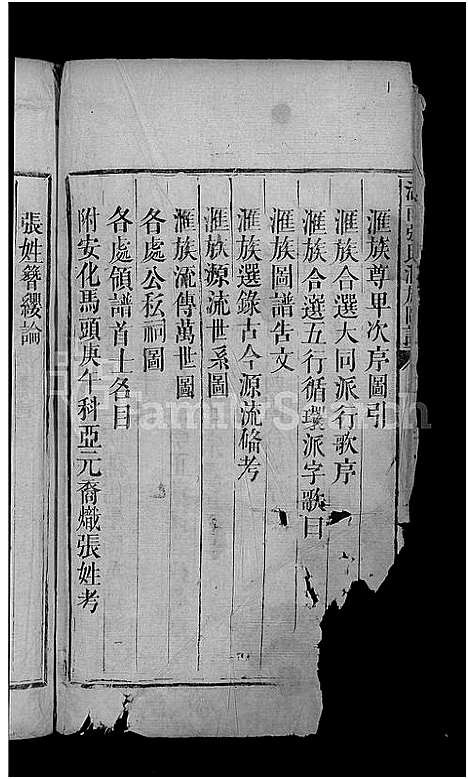 滙族尊甲次序圖引
滙族合選大同派行歌序
滙族合選五行循環派字歌曰
滙族圖譜告文
滙族選錄古今源流俻考
滙族源流世系圖
滙族流傳萬世圖
各處公私祠圖
各處領譜首士各目
附安化馬頭庚午科亞元裔熾張姓考
張姓簪纓論
FamilySearch